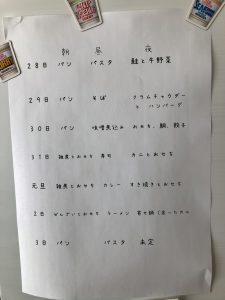 朝 昼 夜
28日 パン パスタ 鮭と牛野菜
29日 パン そば クラムチャウダー
と ハンバーグ
30日 パン 味噌煮込み おせち、鯛、餃子
31日 雑煮とおせち 寿司 カニとおせち
元旦 雑煮とおせち カレー すき焼きとおせち
2日 ぜんざいとおせち ラーメン 寄せ鍋
3日 パン パスタ 未定